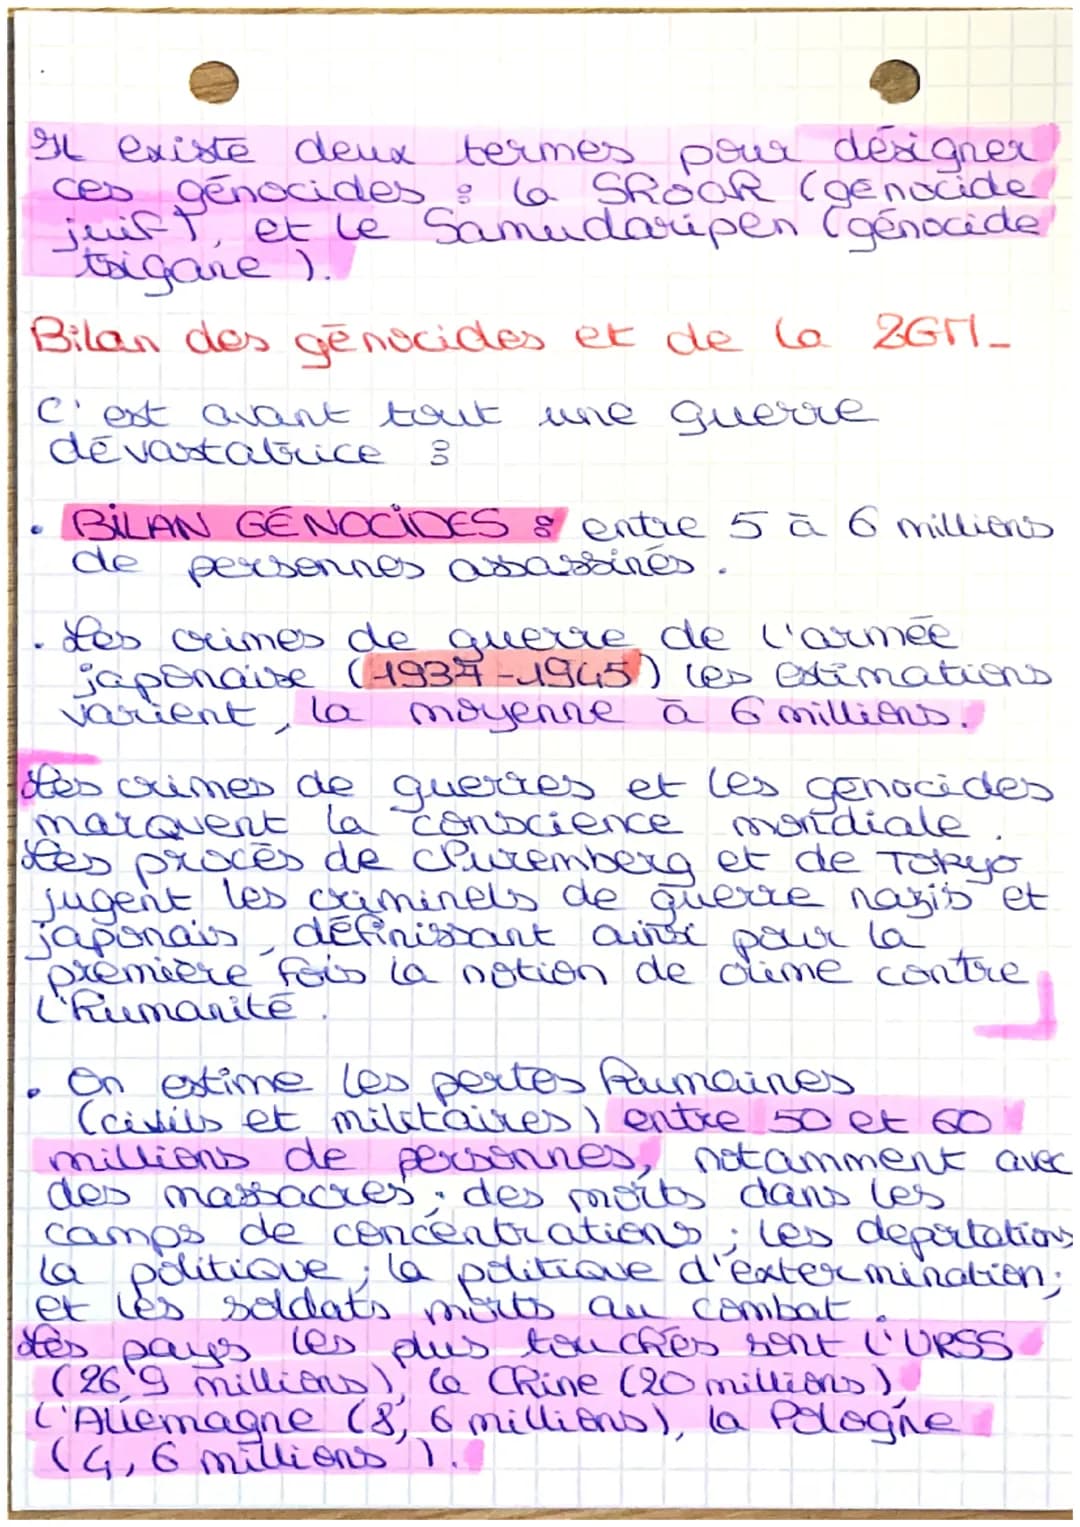 Il existe deux termes pour désigner
ces génocides : la Shoah (génocide
juif), et le Samudaripen (génocide
tsigane).
Bilan des génocides et de la 2GM_
C'est avant tout une guerre
dévastatrice :
• BILAN GÉNOCIDES : entre 5 à 6 millions
de personnes assassinés.
• Les crimes de guerre de l'armée
japonaise (1937-1945) les estimations
varient, la moyenne à 6 millions.
Les crimes de guerres et les génocides
marquent la conscience mondiale.
Les procès de Nuremberg et de Tokyo
jugent les criminels de guerre nazis et
japonais, définissant ainsi pour la
première fois la notion de crime contre
l'humanité.
• On estime les pertes humaines
(civils et militaires) entre 50 et 60
millions de personnes, notamment avec
des massacres ; des morts dans les
camps de concentrations ; les déportations
la politique ; la politique d'extermination ;
et les soldats morts au combat.
Les pays les plus touchés sont l'URSS
(26,9 millions), la Chine (20 millions),
l'Allemagne (8, 6 millions), la Pologne
(4, 6 millions).